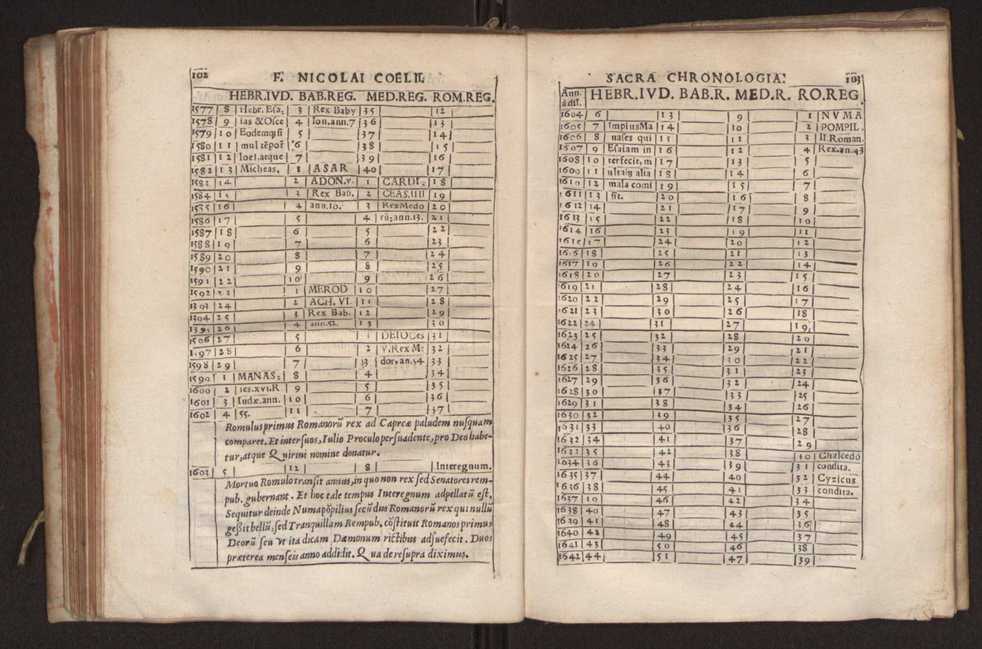 102 F. NICOLAI COELII.
HEBR.IVD. BAB.REG. MED.REG. ROM.REG.
1577 | 8 | Hebr. Esa, 3 | Rex Baby | 35 | 12 |
1578 | 9 | ias & Osee 4 | Ion.ann.7 | 36 | 13 |
1579 | 10 | Eodemqs̃i 5 | 37 | 14 |
1580 | 11 | mul tẽpor̃ 6 | 38 | 15 |
1581 | 12 | Ioel.atque 7 | 39 | 16 |
1582 | 13 | Micheas. 1 | ASAR | 40 | 17 |
1583 | 14 | 2 | ADON.v. 1 | CARDI. | 18 |
1584 | 15 | 3 | Rex Bab. 2 | CEAS.IIII | 19 |
1585 | 16 | 4 | ann.10. 3 | Rex Medo | 20 |
1586 | 17 | 5 | 4 | rũ;ann.13. | 21 |
1587 | 18 | 6 | 5 | 22 |
1588 | 19 | 7 | 6 | 23 |
1589 | 20 | 8 | 7 | 24 |
1590 | 21 | 9 | 8 | 25 |
1591 | 22 | 10 | 9 | 26 |
1592 | 23 | 1 | MEROD | 10 | 27 |
1593 | 24 | 2 | ACH. VI. | 11 | 28 |
1594 | 25 | 3 | Rex Bab. | 12 | 29 |
1595 | 26 | 4 | ann.52. | 13 | 30 |
1596 | 27 | 5 | 1 | DEIOCES | 31 |
1597 | 28 | 6 | 2 | V.Rex M: | 32 |
1598 | 29 | 7 | 3 | dor.an.54 | 33 |
1599 | 1 | MANAS: | 8 | 4 | 34 |
1600 | 2 | ses.xvi.R | 9 | 5 | 35 |
1601 | 3 | Iudæ.ann. | 10 | 6 | 36 |
1602 | 4 | 55. | 11 | 7 | 37 |
Romulus primus Romanorũ rex ad Capreæ paludem nusquam
comparet. Et inter suos, Iulio Proculo persuadente, pro Deo habe-
tur, atque Quirini nomine donatur.
1603 | 5 | 12 | 8 | Interegnum.
Mortuo Romulo transit annus, in quo non rex sed Senatores rem-
pub. gubernant. Et hoc tale tempus Interegnum adpellatũ est,
Sequitur deinde Numapõpilius secũdus Romanorũ rex qui nullũ
geßit bellũ, sed Tranquillam Rempub. cõstituit Romanos primus
Deorũ seu vt ita dicam Dæmonum rictibus adsuefecit. Duos
præterea menseis anno addidit. Qua de re supra diximus.
SACRA CHRONOLOGIA. 103
Ann. ædiſſ. HEBR.IVD. BAB.R. MED.R. RO.REG
1604 | 6 | 13 | 9 | 1 | NVMA
1605 | 7 | ImpiusMa | 14 | 10 | 2 | POMPIL.
1606 | 8 | nases qui | 15 | 11 | 3 | II.Roman.
1607 | 9 | Esaiam in | 16 | 12 | 4 | Rex.an.43
1608 | 10 | terfecit, m | 17 | 13 | 5 |
1609 | 11 | ultaq; alia | 18 | 14 | 6 |
1610 | 12 | mala comi | 19 | 15 | 7 |
1611 | 13 | sit. | 20 | 16 | 8 |
1612 | 14 | 21 | 17 | 9 |
1613 | 15 | 22 | 18 | 10 |
1614 | 16 | 23 | 19 | 11 |
1615 | 17 | 24 | 20 | 12 |
1616 | 18 | 25 | 21 | 13 |
1617 | 19 | 26 | 22 | 14 |
1618 | 20 | 27 | 23 | 15 |
1619 | 21 | 28 | 24 | 16 |
1620 | 22 | 29 | 25 | 17 |
1621 | 23 | 30 | 26 | 18 |
1622 | 24 | 31 | 27 | 19 |
1623 | 25 | 32 | 28 | 20 |
1624 | 26 | 33 | 29 | 21 |
1625 | 27 | 34 | 30 | 22 |
1626 | 28 | 35 | 31 | 23 |
1627 | 29 | 36 | 32 | 24 |
1628 | 30 | 37 | 33 | 25 |
1629 | 31 | 38 | 34 | 26 |
1630 | 32 | 39 | 35 | 27 |
1631 | 33 | 40 | 36 | 28 |
1632 | 34 | 41 | 37 | 29 |
1633 | 35 | 42 | 38 | 30 | Chalcedo
1634 | 36 | 43 | 39 | 31 | condita.
1635 | 37 | 44 | 40 | 32 | Cyzicus
1636 | 38 | 45 | 41 | 33 | condita.
1637 | 39 | 46 | 42 | 34 |
1638 | 40 | 47 | 43 | 35 |
1639 | 41 | 48 | 44 | 36 |
1640 | 42 | 49 | 45 | 37 |
1641 | 43 | 50 | 46 | 38 |
1642 | 44 | 51 | 47 | 39 |